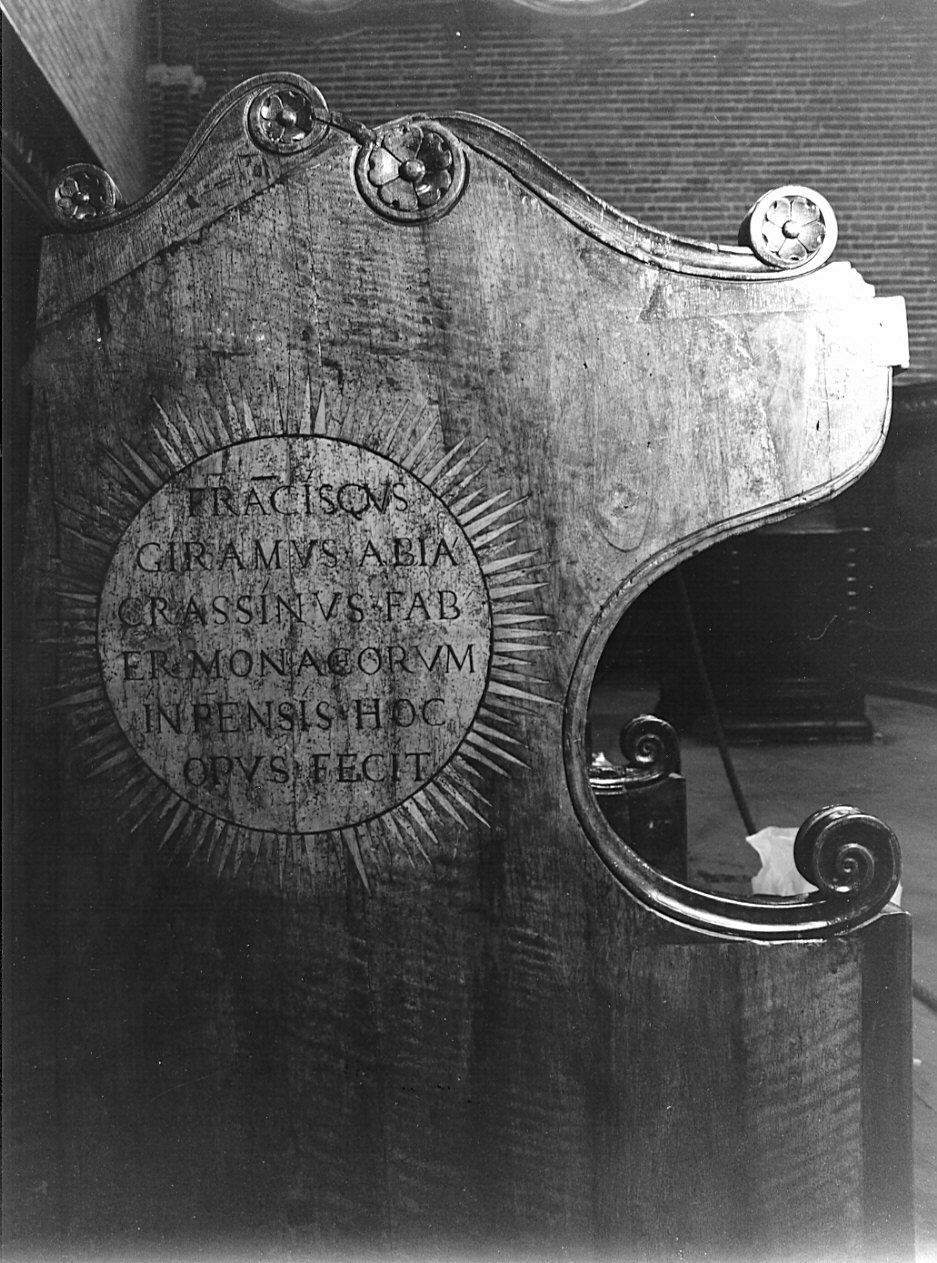 FRĀCĪSQVS
GIRAMVS·ABIA
CRASSINVS·FAB
ER·MONACORVM
IN P̄ENSIS·HOC
OPVS·FECIT